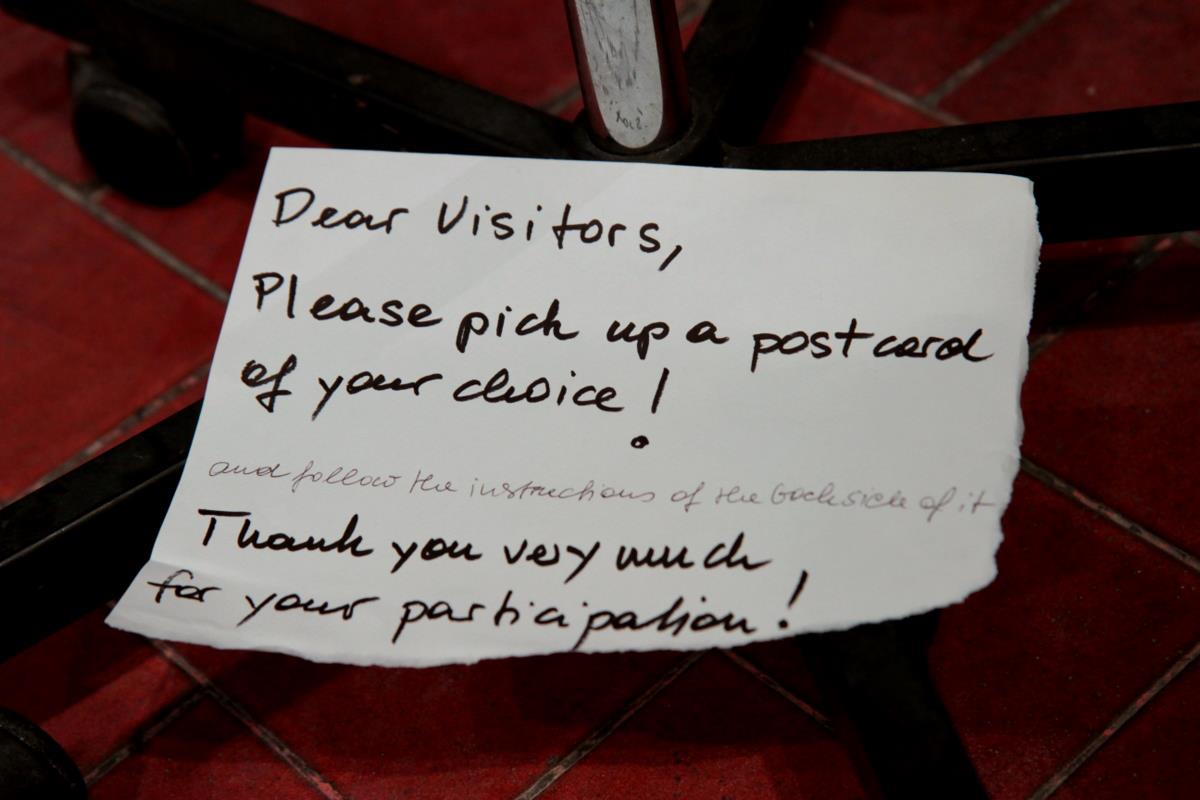 Dear Visitors,
Please pick up a postcard
of your choice!
and follow the instructions of the backside of it
Thank you very much
for your participation!